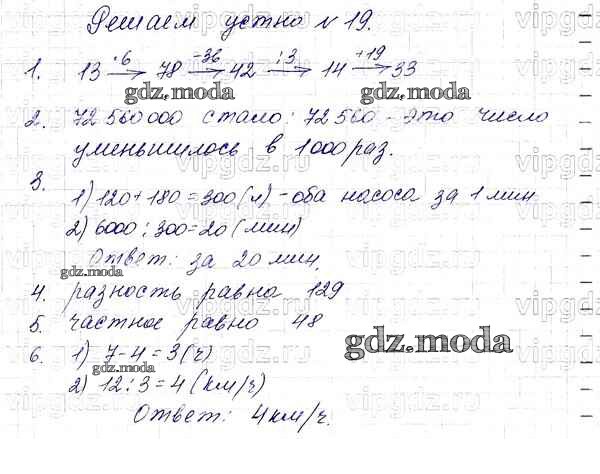 Решаем устно № 19.
1. 13 ·6 → 78 -36 → 42 :3 → 14 +19 → 33
gdz.moda gdz.moda
2. 72 560 000 стало: 72 560 - это число
уменьшилось в 1000 раз.
3.
1) 120 + 180 = 300 (л) - оба насоса за 1 мин
2) 6000 : 300 = 20 (мин)
Ответ: за 20 мин.
gdz.moda
4. разность равна 129
5. частное равно 48
6. 1) 7 - 4 = 3 (ч)
gdz.moda
2) 12 : 3 = 4 (км/ч)
Ответ: 4 км/ч.